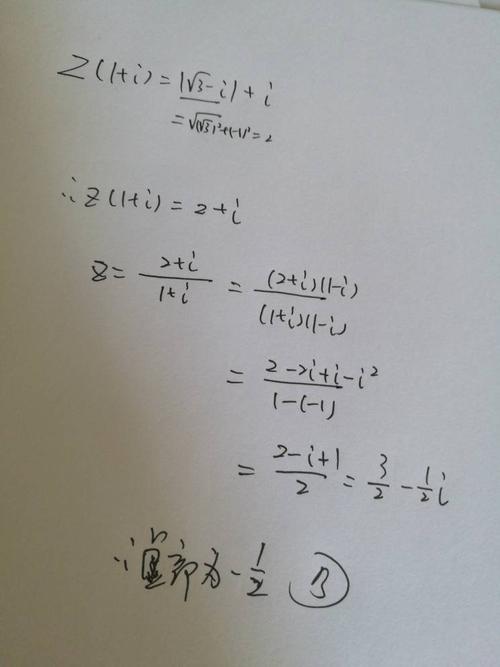 Z(1+i)=|√3-i|+i
=√(√3)²+(-1)²=2
∴z(1+i)=2+i
z=2+i/1+i=(2+i)(1-i)/(1+i)(1-i)
=2-2i+i-i²/1-(-1)
=2-i+1/2=3/2-1/2i
∴虚部为-1/2 B